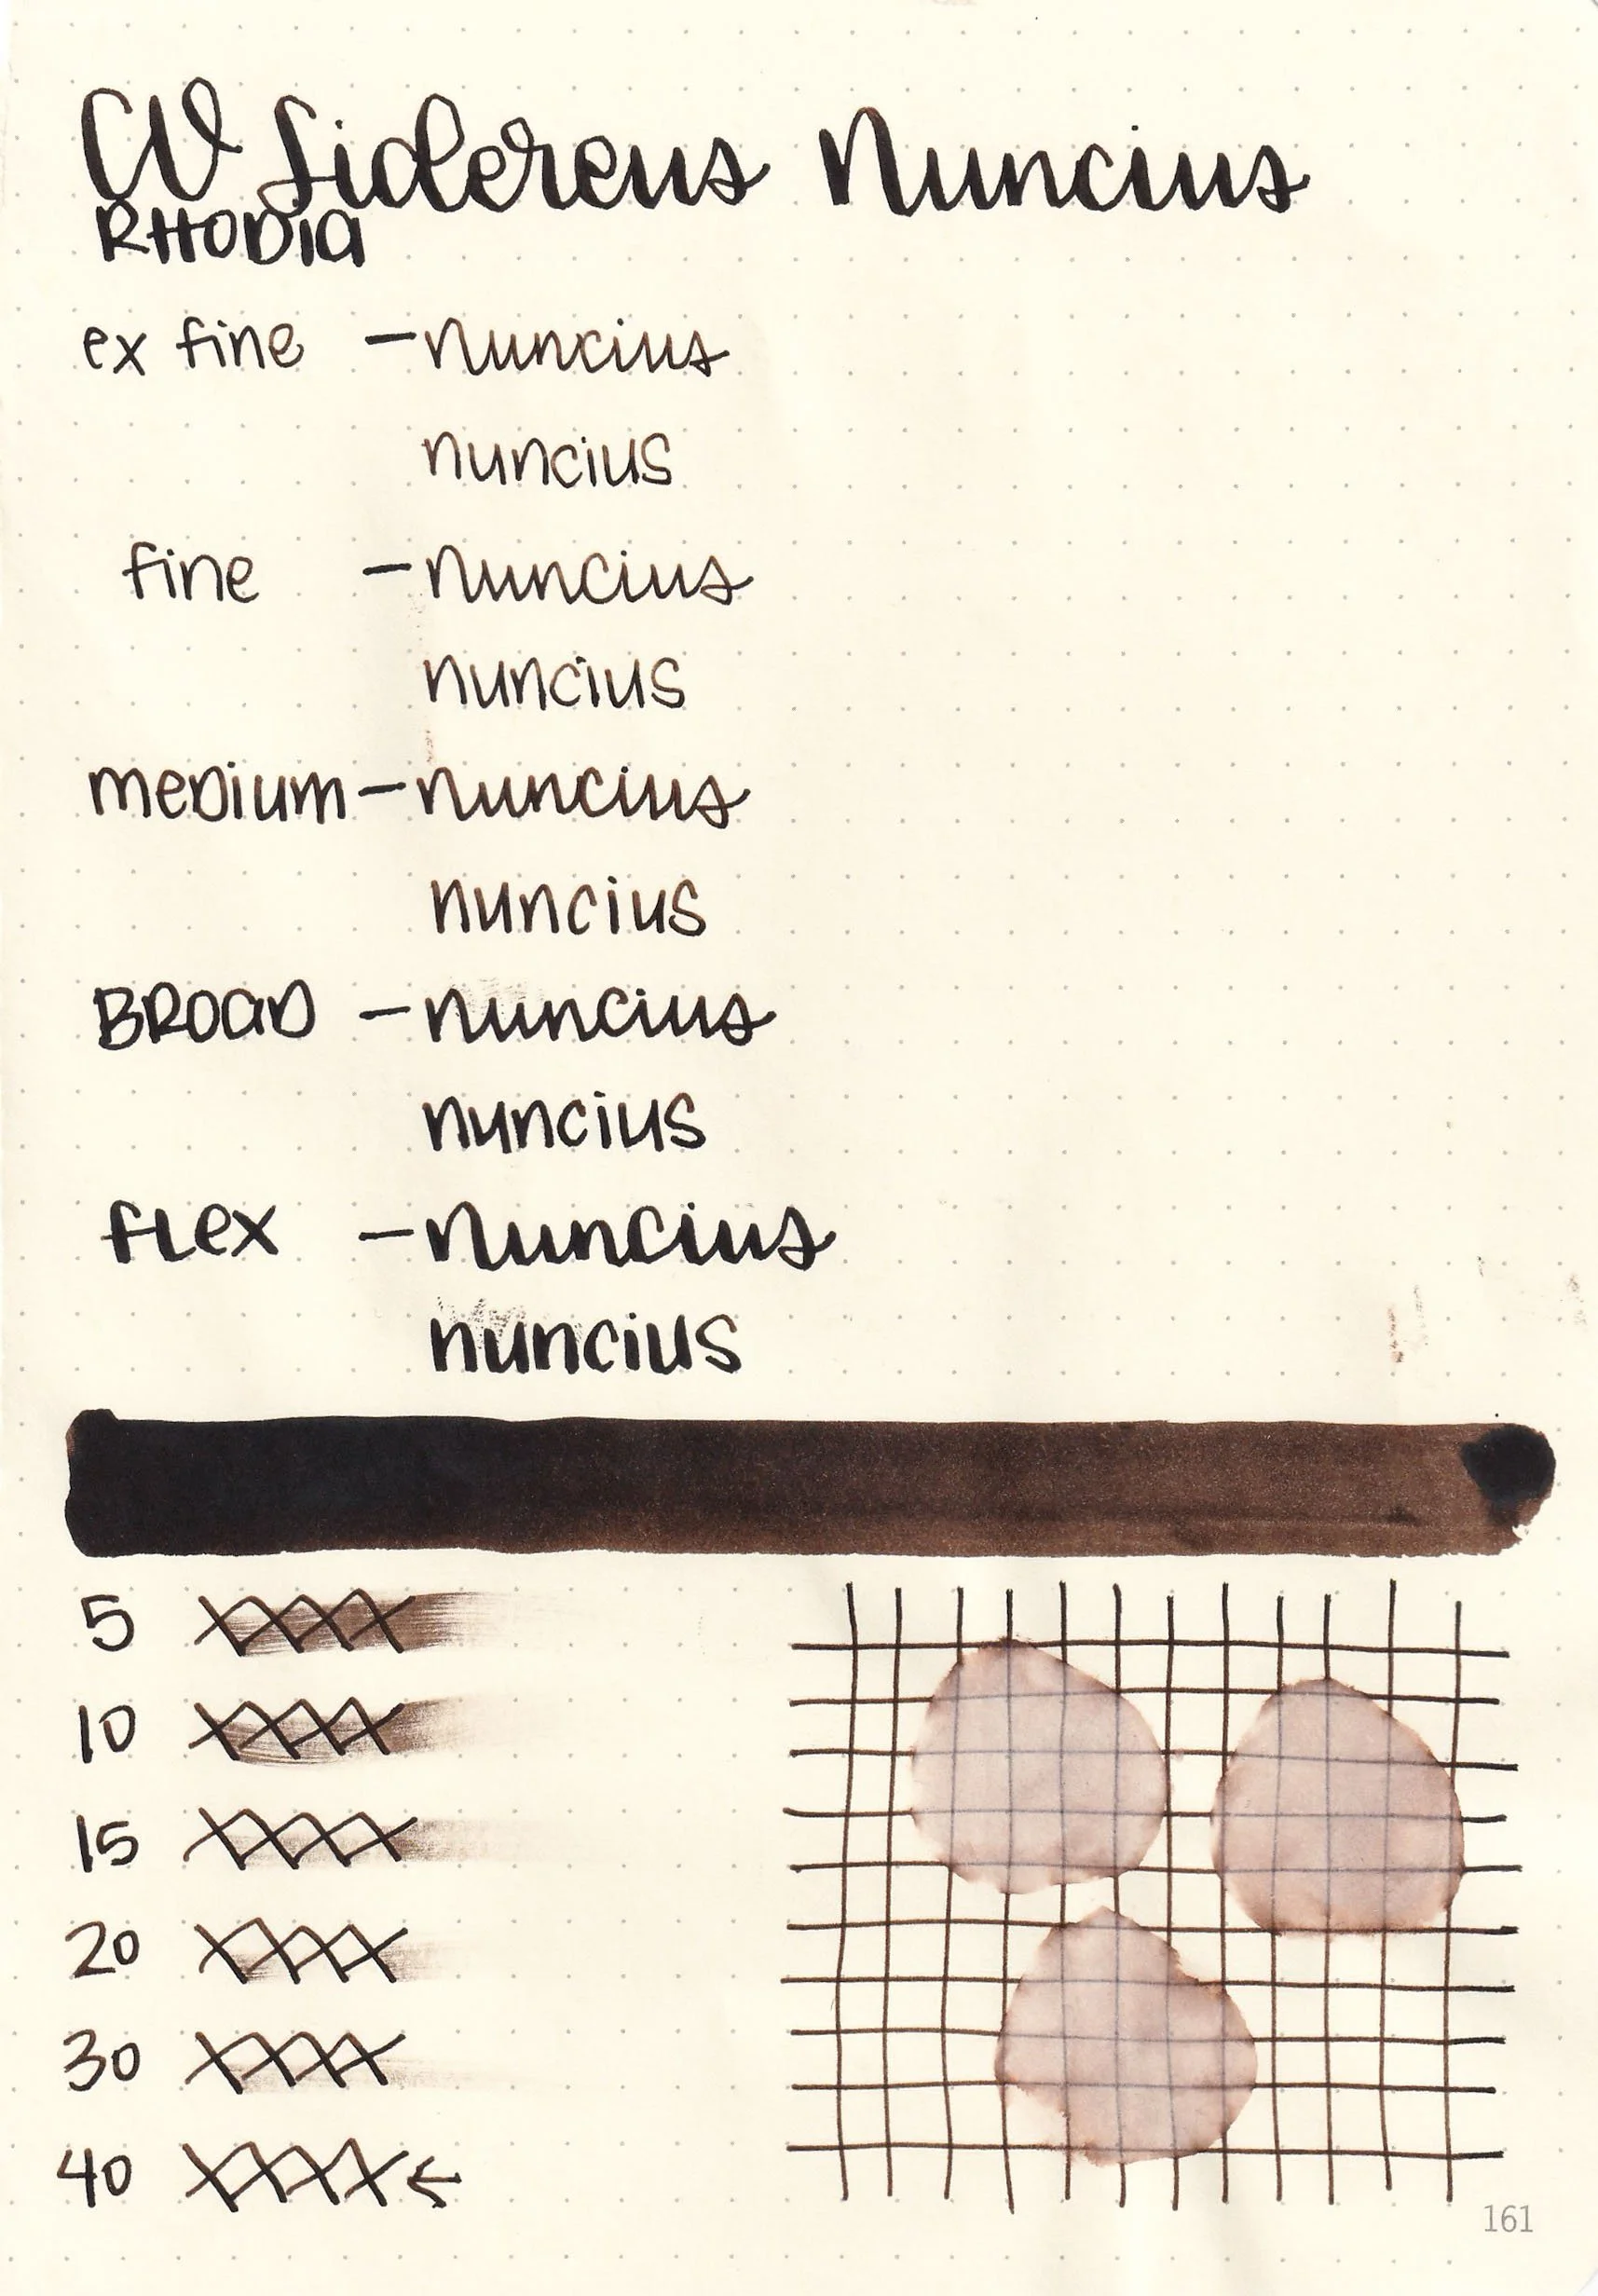 CW Sidereus Nuncius
RHODIA
ex fine - nuncius
nuncius
fine - nuncius
nuncius
medium - nuncius
nuncius
BROAD - nuncius
nuncius
flex - nuncius
nuncius
5
10
15
20
30
40 ←
161